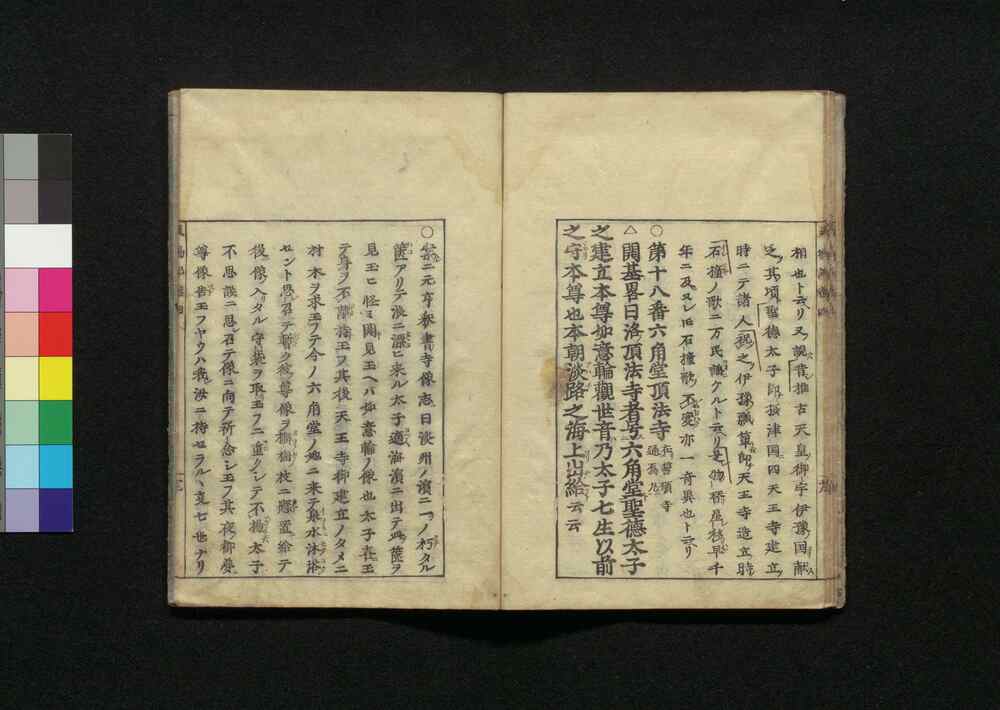 相也ト云リ又說曾推古天皇御宇伊豫国献
之其頃聖德太子即摂津国四天王寺建立
時ニテ諸人祝之伊豫國第即天王寺造立時
石撞ノ歌ニ万民謡クルト云リ是物称星霜早千
年ニ及ヌレ𪜈石撞歌不変亦一奇異也ト云リ
○第十八番六角堂頂法寺
△開基畧曰洛頂法寺者号六角堂聖德太子
之建立本尊如意輪觀世音乃太子七生以前
之守本尊也本朝淡路之海上出給云云
○案ニ元亨釈書寺像志曰淡州ノ濱ニ一ノ朽タル
篋アリテ浪ニ漂ヒ来ル太子適海濱ニ出テ此篋ヲ
見玉ヒ怪ミ開見玉ヘバ如意輪ノ像也太子喜玉
テ身ヲ不離持玉フ其後天王寺御建立ノタメニ
材木ヲ求玉フテ今ノ六角堂ノ地ニ来テ泉水沐浴
セント思召テ暫ク彼尊像ヲ樹枝ニ懸置給テ
後像入タル守袋ヲ取玉フニ重クシテ不揚太子
不思議ニ思召テ像ニ向テ祈念シ玉フ其夜御夢
尊像告玉フヤウハ我汝ニ持セラルヽ直七世ナリ